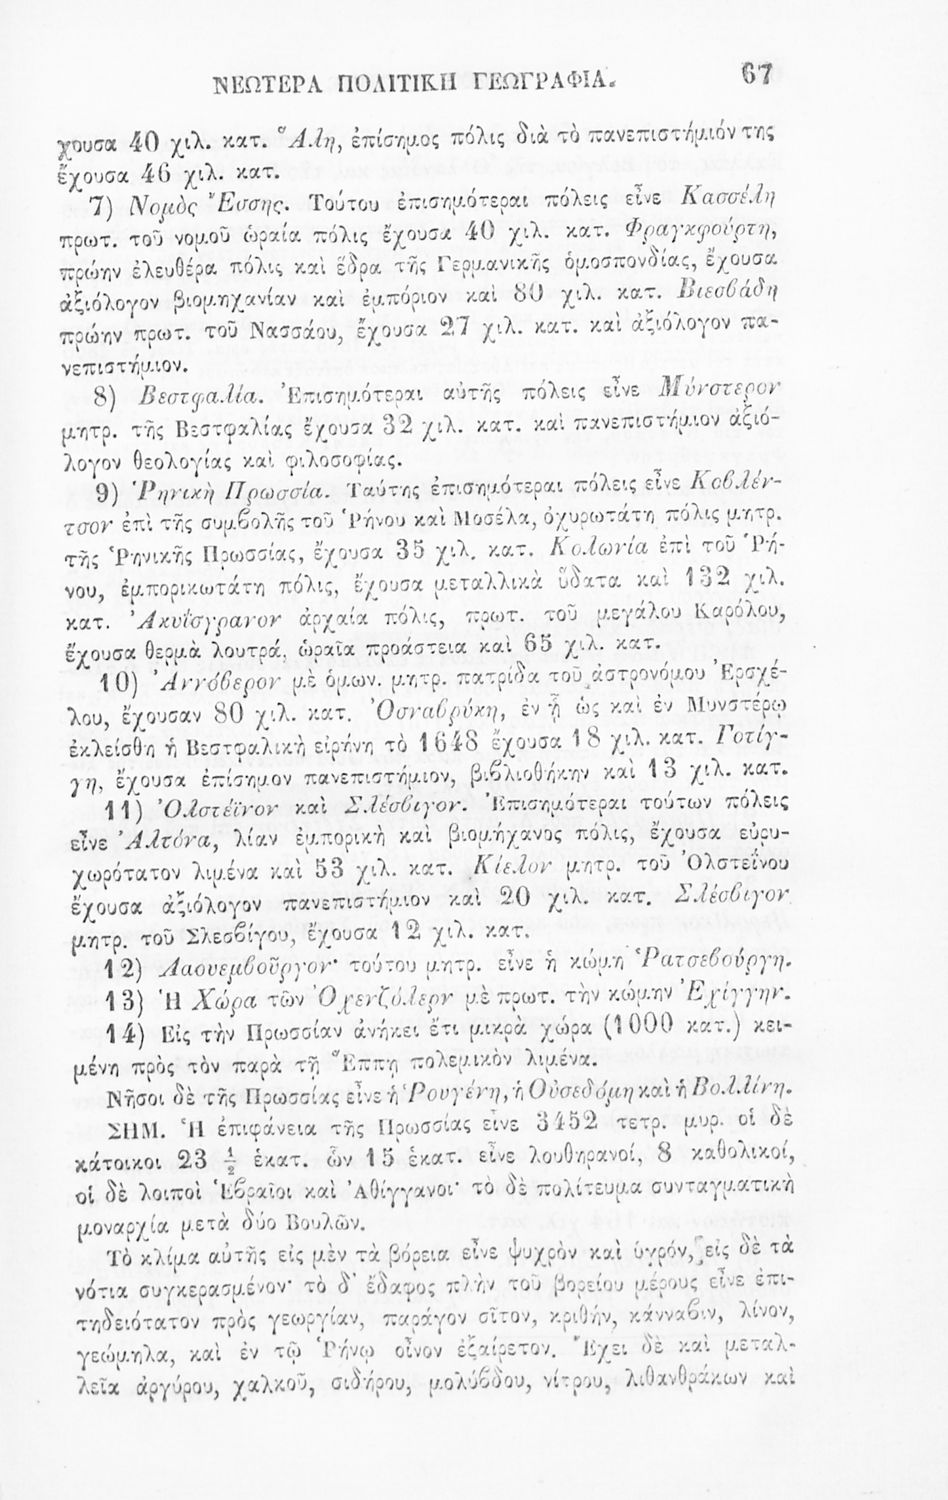 ΝΕΩΤΕΡΑ ΠΟΛΙΤΙΚΗ ΓΕΩΓΡΑΦΙΑ. 67
χουσα 40 χιλ. κατ. Ἅλη, ἐπίσημος πόλις διὰ τὸ πανεπιστήμιόν της
ἔχουσα 46 χιλ. κατ.
7) Νομὸς Ἔσσης. Τούτου ἐπισημότεραι πόλεις εἶνε Κασσέλη
πρωτ. τοῦ νομοῦ ὡραία πόλις ἔχουσα 40 χιλ. κατ. Φραγκφούρτη,
πρώην ἐλευθέρα πόλις καὶ ἕδρα τῆς Γερμανικῆς ὁμοσπονδίας, ἔχουσα
ἀξιόλογον βιομηχανίαν καὶ ἐμπόριον καὶ 80 χιλ. κατ. Βιεσβάδη
πρώην πρωτ. τοῦ Νασσάου, ἔχουσα 27 χιλ. κατ. καὶ ἀξιόλογον πα-
νεπιστήμιον.
8) Βεστφαλία. Ἐπισημότεραι αὐτῆς πόλεις εἶνε Μύνστερον
μητρ. τῆς Βεστφαλίας ἔχουσα 32 χιλ. κατ. καὶ πανεπιστήμιον ἀξιό-
λογον θεολογίας καὶ φιλοσοφίας.
9) Ῥηνικὴ Πρωσσία. Ταύτης ἐπισημότεραι πόλεις εἶνε Κοβλέν-
τσον ἐπὶ τῆς συμβολῆς τοῦ Ῥήνου καὶ Μοσέλα, ὀχυρωτάτη πόλις μητρ.
τῆς Ῥηνικῆς Πρωσσίας, ἔχουσα 35 χιλ. κατ. Κολωνία ἐπὶ τοῦ Ῥή-
νου, ἐμπορικωτάτη πόλις, ἔχουσα μεταλλικὰ ὕδατα καὶ 132 χιλ.
κατ. Ἀκυΐσγρανον ἀρχαία πόλις, πρωτ. τοῦ μεγάλου Καρόλου,
ἔχουσα θερμὰ λουτρά, ὡραῖα προάστεια καὶ 65 χιλ. κατ.
10) Ἀννόβερον μὲ ὁμων. μητρ. πατρίδα τοῦ ἀστρονόμου Ἑρσχέ-
λου, ἔχουσαν 80 χιλ. κατ. Ὀσναβρύκη, ἐν ᾗ ὡς καὶ ἐν Μυνστέρῳ
ἐκλείσθη ἡ Βεστφαλικὴ εἰρήνη τὸ 1648 ἔχουσα 18 χιλ. κατ. Γοτίγ-
γη, ἔχουσα ἐπίσημον πανεπιστήμιον, βιβλιοθήκην καὶ 13 χιλ. κατ.
11) Ὀλστεΐνον καὶ Σλέσβιγον. Ἐπισημότεραι τούτων πόλεις
εἶνε Ἀλτόνα, λίαν ἐμπορικὴ καὶ βιομήχανος πόλις, ἔχουσα εὐρυ-
χωρότατον λιμένα καὶ 53 χιλ. κατ. Κίελον μητρ. τοῦ Ὀλστεΐνου
ἔχουσα ἀξιόλογον πανεπιστήμιον καὶ 20 χιλ. κατ. Σλέσβιγον
μητρ. τοῦ Σλεσβίγου, ἔχουσα 12 χιλ. κατ.
12) Λαουεμβοῦργον· τούτου μητρ. εἶνε ἡ κώμη Ῥατσεβούργη.
13) Ἡ Χώρα τῶν Ὁχενζόλερν μὲ πρωτ. τὴν κώμην Ἐχίγγην.
14) Εἰς τὴν Πρωσσίαν ἀνήκει ἔτι μικρὰ χώρα (1000 κατ.) κει-
μένη πρὸς τὸν παρὰ τῇ Ἕππῃ πολεμικὸν λιμένα.
Νῆσοι δὲ τῆς Πρωσσίας εἶνε ἡ Ῥουγένη, ἡ Οὐσεδόμη καὶ ἡ Βολλίνη.
ΣΗΜ. Ἡ ἐπιφάνεια τῆς Πρωσσίας εἶνε 3452 τετρ. μυρ. οἱ δὲ
κάτοικοι 23 ½ ἑκατ. ὧν 15 ἑκατ. εἶνε λουθηρανοί, 8 καθολικοί,
οἱ δὲ λοιποὶ Ἑβραῖοι καὶ Ἀθίγγανοι· τὸ δὲ πολίτευμα συνταγματικὴ
μοναρχία μετὰ δύο Βουλῶν.
Τὸ κλίμα αὐτῆς εἰς μὲν τὰ βόρεια εἶνε ψυχρὸν καὶ ὑγρόν, εἰς δὲ τὰ
νότια συγκερασμένον· τὸ δ' ἔδαφος πλὴν τοῦ βορείου μέρους εἶνε ἐπι-
τηδειότατον πρὸς γεωργίαν, παράγον σῖτον, κριθήν, κάνναβιν, λίνον,
γεώμηλα, καὶ ἐν τῷ Ῥήνῳ οἶνον ἐξαίρετον. Ἔχει δὲ καὶ μεταλ-
λεῖα ἀργύρου, χαλκοῦ, σιδήρου, μολύβδου, νίτρου, λιθανθράκων καὶ